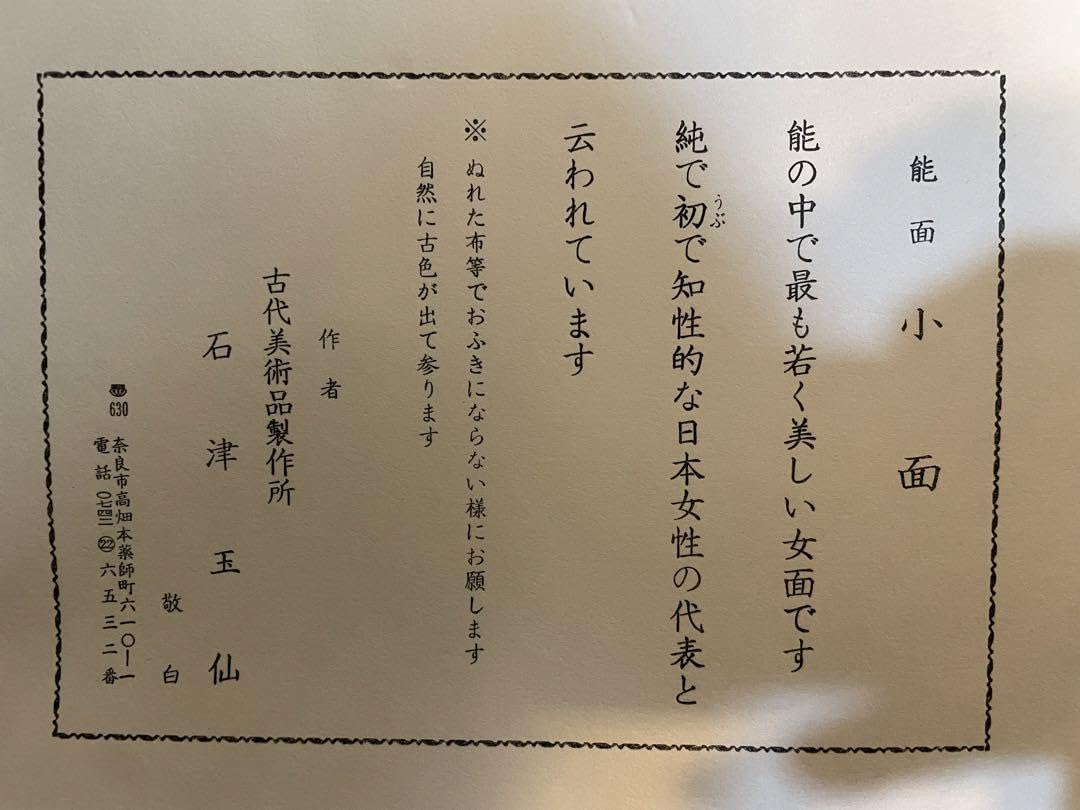 能面 小面
能の中で最も若く美しい女面です
純で初で知性的な日本女性の代表と
うぶ
云われています
※ ぬれた布等でおふきにならない様にお願します
自然に古色が出て参ります
作者
古代美術品製作所
石津玉仙
敬白
〠630
奈良市高畑本薬師町六一〇ー一
電話〇七四二㉒六五三二番